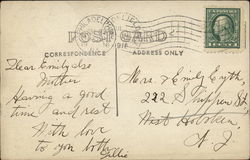 PHILADELPHIA, PA.
1916
POST CARD
CORRESPONDENCE
ADDRESS ONLY
Dear Emily also
Mother
Having a good
time and rest
With love
to you both
Lillie
Mrs. & Emily
222
St,
West Hoboken
N. J.